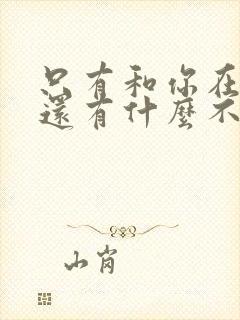 只有和你在
還有什麼不
山肖